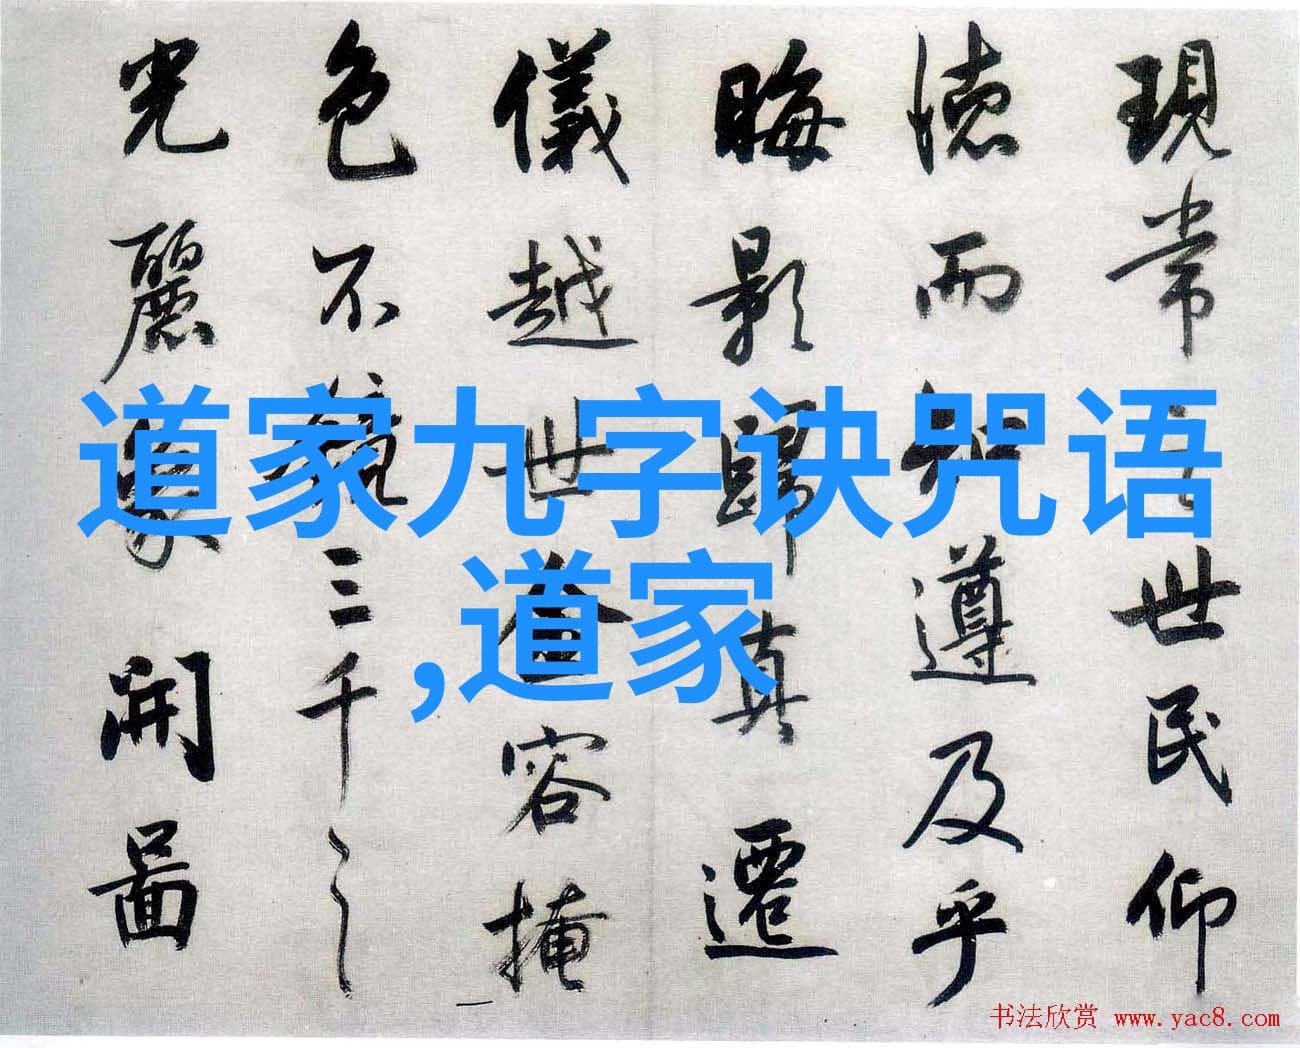 現常之世民仰
德而知遵及乎
晦影歸真遷
儀越世金容掩
色不鏡三千之
光麗象開圖
道家九字诀咒语
,道家
书法欣赏 www.yac8.com